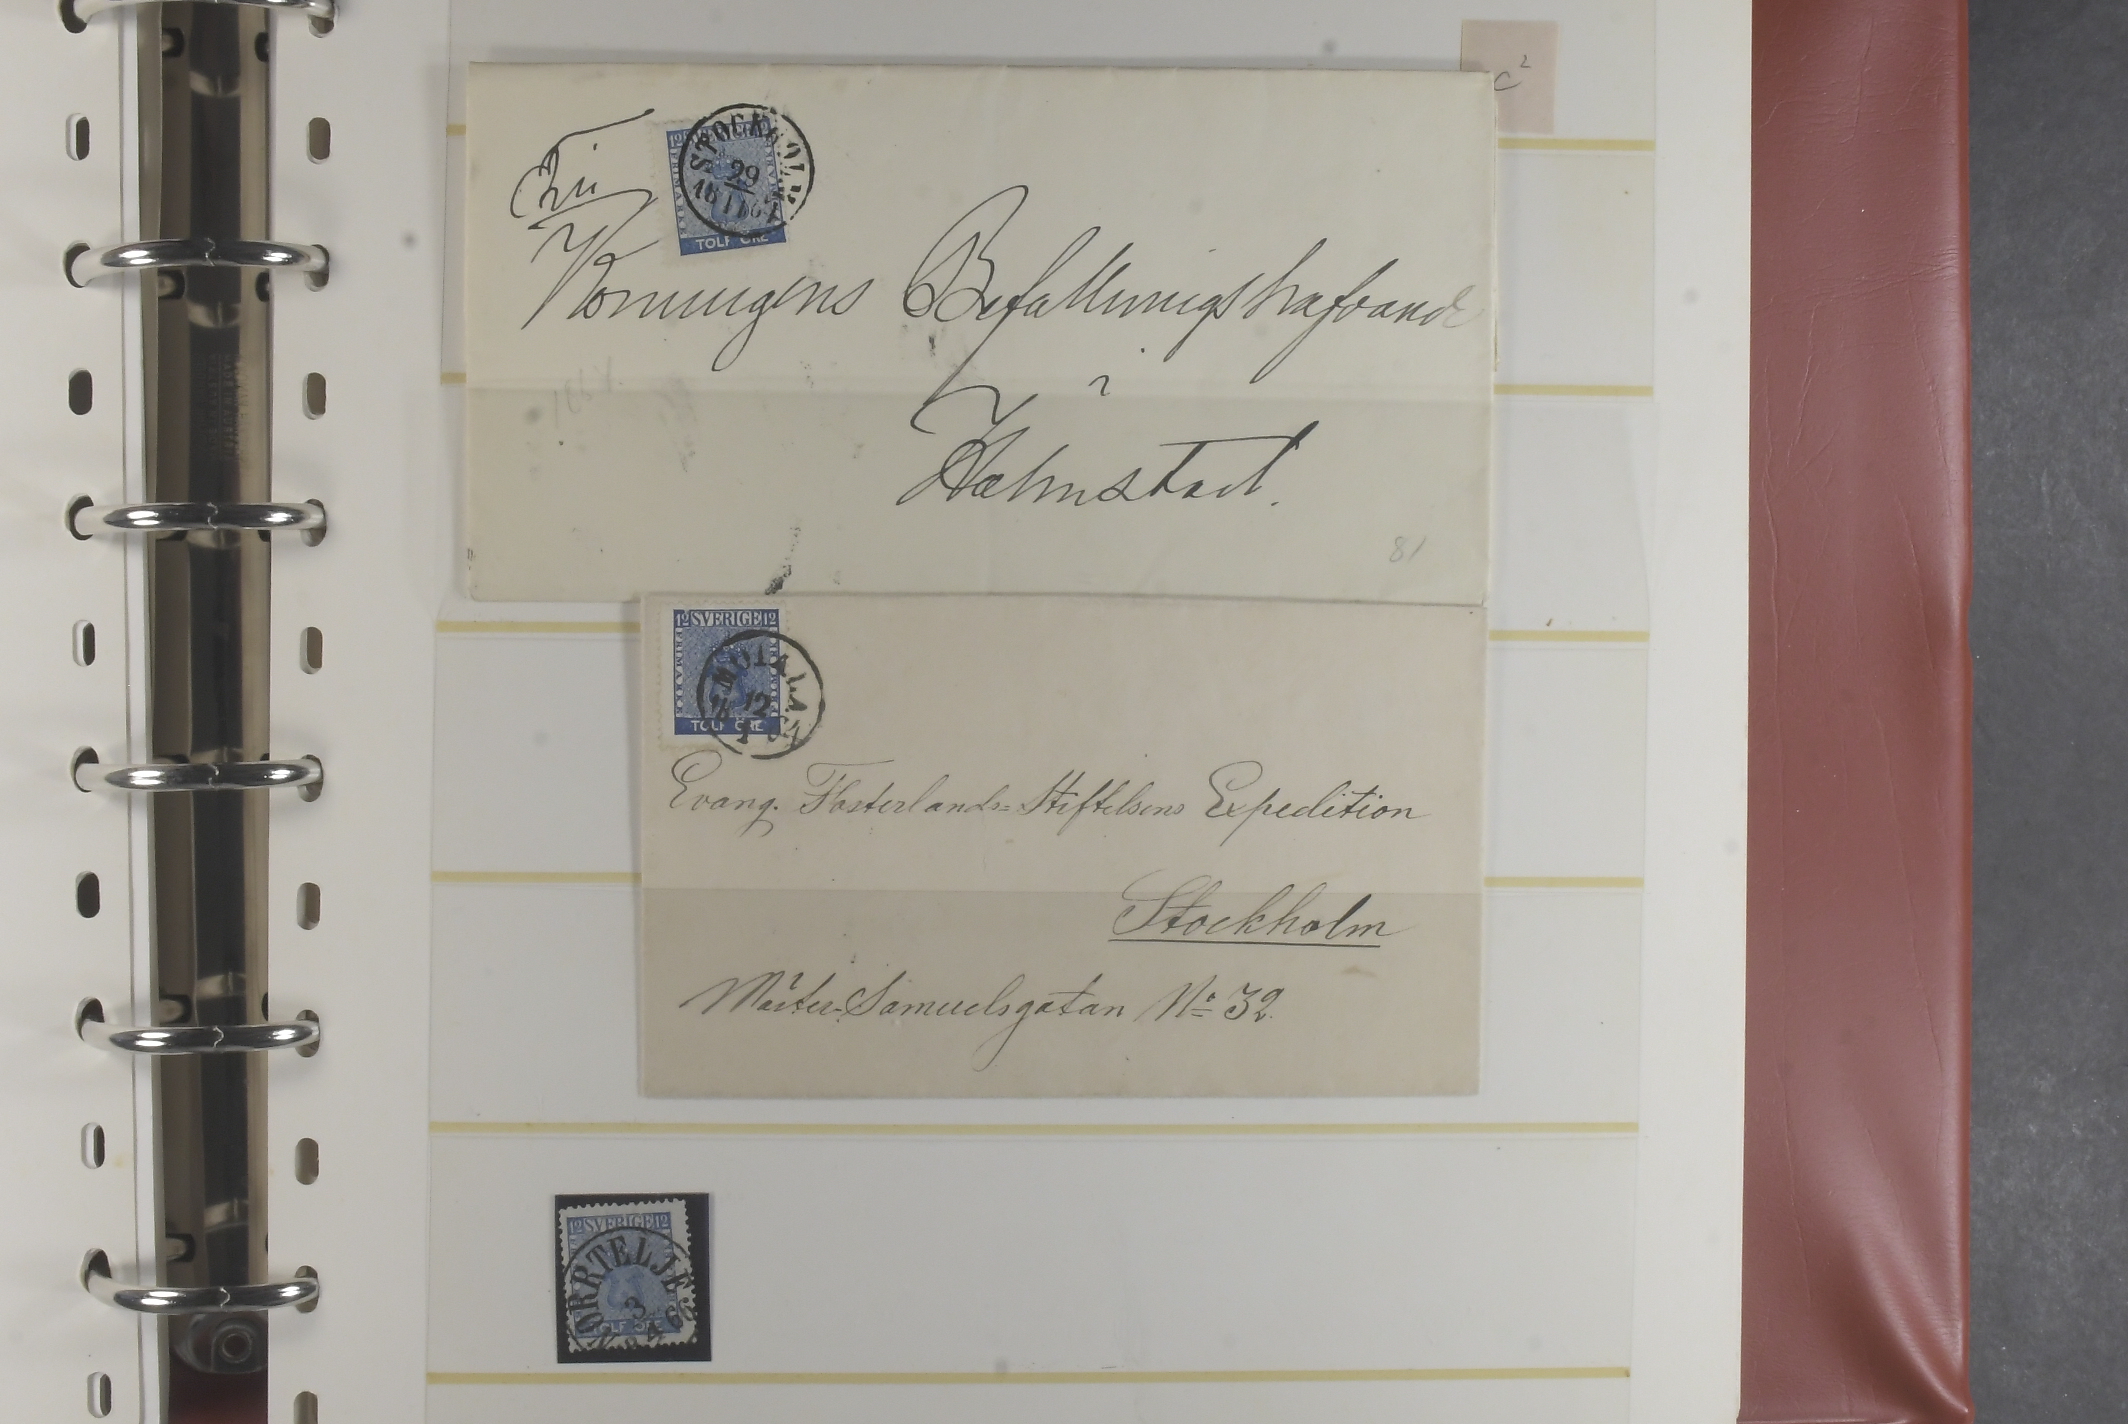 c²
STOCKHOLM
29
TOLF ÖRE
Konungens Befallningshafvande
i
Halmstad.
81
12 SVERIGE 12
MOTALA
12
TOLF ÖRE
Evang. Fosterlands-Stiftelsens Expedition
Stockholm
Mäster-Samuelsgatan No 32.
12 SVERIGE 12
NORRTELJE
3
TOLF ÖRE